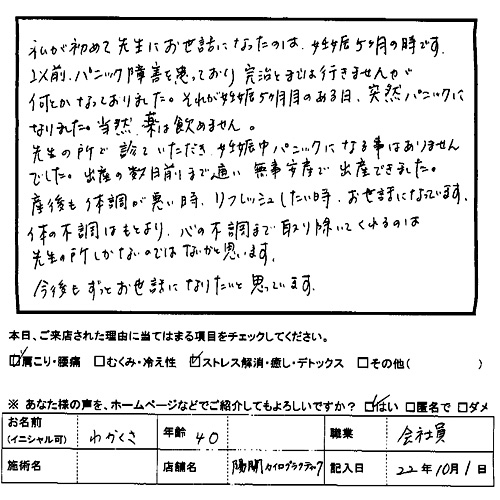 私が初めて先生にお世話になったのは、妊娠5ヶ月の時です。
以前、パニック障害を患っており完治とまでは行きませんが
何とかなっておりました。それが妊娠5ヶ月目のある日、突然パニックに
なりました。当然、薬は飲めません。
先生の所で診ていただき、妊娠中パニックになる事はありません
でした。出産の数日前まで通い無事安産で出産できました。
産後も体調が悪い時、リフレッシュしたい時、お世話になっています。
体の不調はもとより、心の不調まで取り除いてくれるのは
先生の所しかないのではないかと思います。
今後もずっとお世話になりたいと思っています。
本日、ご来店された理由に当てはまる項目をチェックしてください。
☑肩こり・腰痛 □むくみ・冷え性 ☑ストレス解消・癒し・デトックス □その他( )
※ あなた様の声を、ホームページなどでご紹介してもよろしいですか? ☑はい □匿名で □ダメ
お名前 (イニシャル可) わかくさ 年齢 40 職業 会社員
施術名 店舗名 陽開カイロプラクティック 記入日 22年10月1日